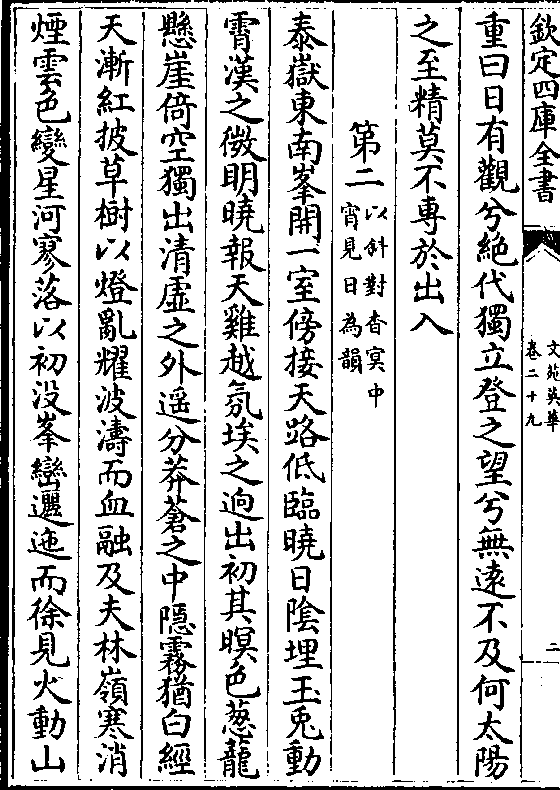 欽定四庫全書
文苑英華
卷二十九
二
重曰日有觀兮絶代獨立登之望兮無遠不及何太陽
之至精莫不專於出入
第二以斜對杳㝠中
宵見日為韻
泰嶽東南峯開一室傍接天路低臨曉日陰埋玉兎動
霄漢之微明曉報天雞越氛埃之逈出初其暝色葱蘢
懸崖倚空獨出清虚之外遥分莽蒼之中隠霧猶白經
天漸紅披草樹以燈亂耀波濤而血融及夫林嶺寒消
煙雲色變星河寥落以初没峯巒邐迤而徐見火動山